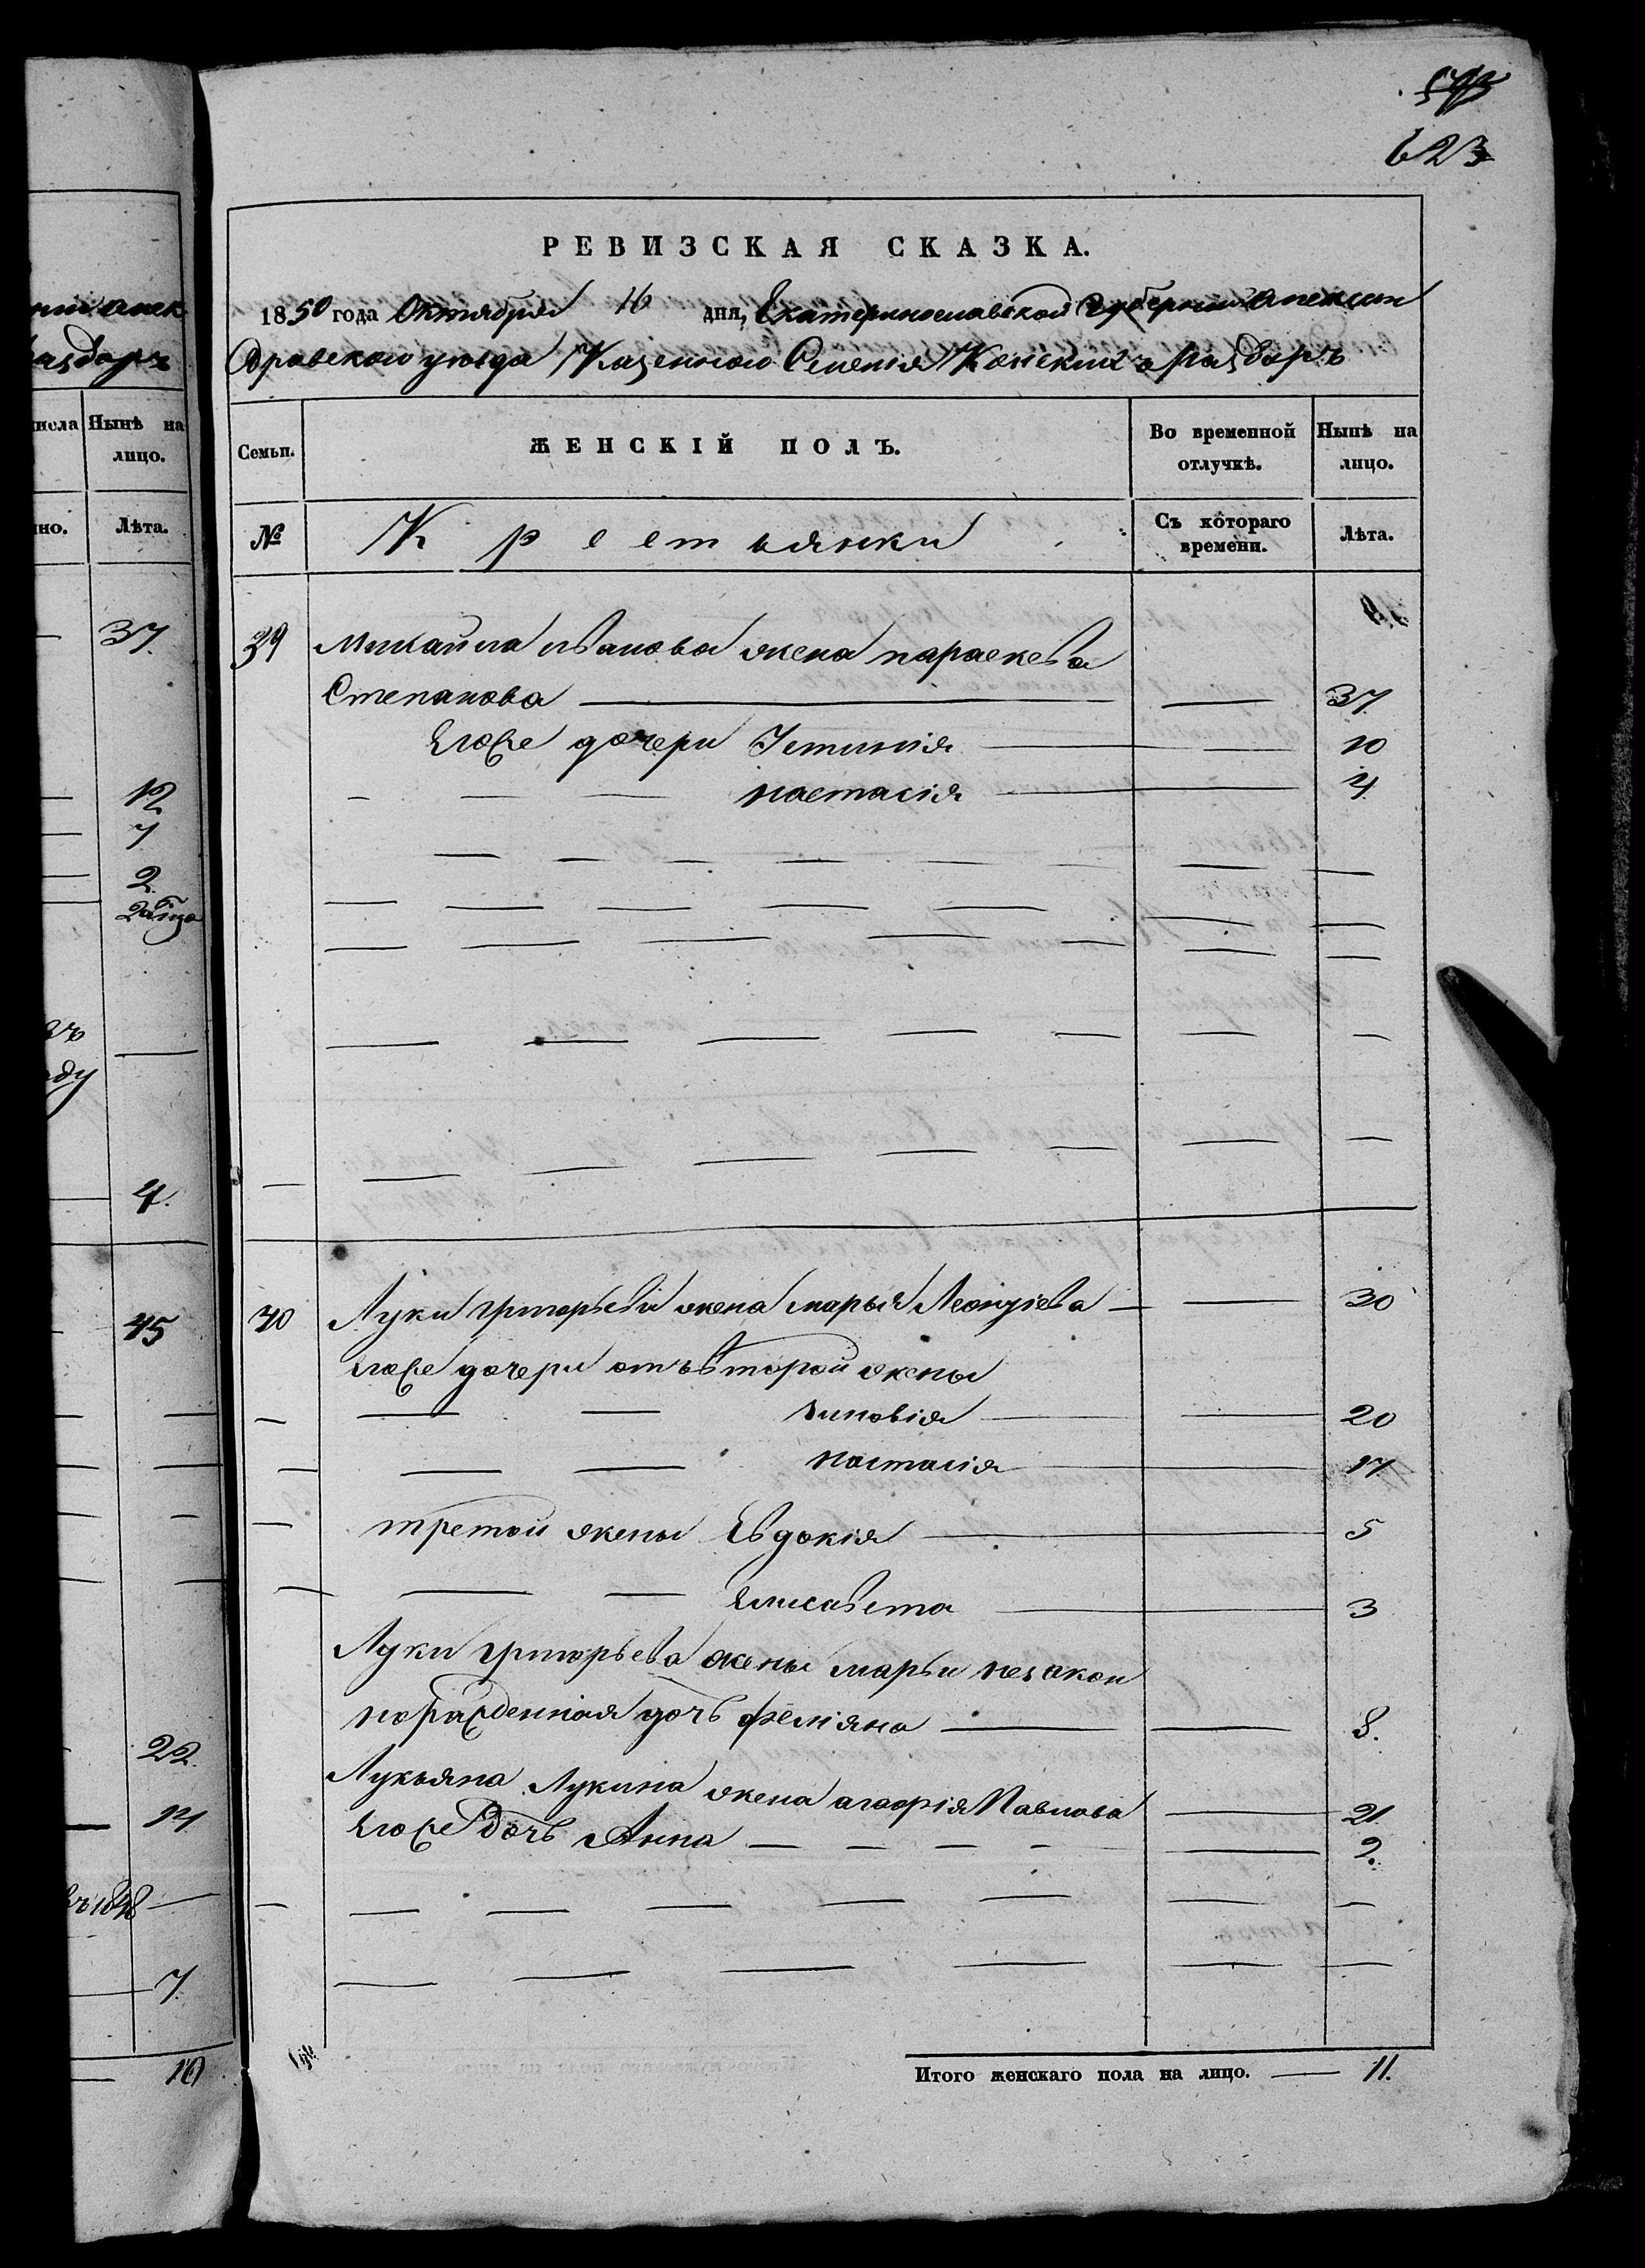 623
РЕВИЗСКАЯ СКАЗКА.
1850 года Октября 16 дня, Екатеринославской Губерніи Александ
дровского уезда Казенного Селенія Конскихъ Раздоръ
Семьи.
ЖЕНСКІЙ ПОЛЪ.
Во временной отлучкѣ.
Нынѣ на лицо.
№
Крестьянки
Съ котораго времени.
Лѣта.
39 Михайла иванова жена параскева
Степанова 37
Его же дочери Іустинія 10
настасія 4
40 Луки григорьева жена марья Леонтіева 30
его же дочери отъ второй жены
зиновія 20
настасія 17
третой жены Евдокія 5
Елисавета 3
Луки григорьева жены марьи незакон
норажденная дочь 8.
Лукьяна Лукина жена агафія Павлова 21
Его же дочь Анна 2.
Итого женскаго пола на лицо. 11.
Нынѣ на лицо.
Лѣта.
37
12
7
2
4.
45
22
14
7
10